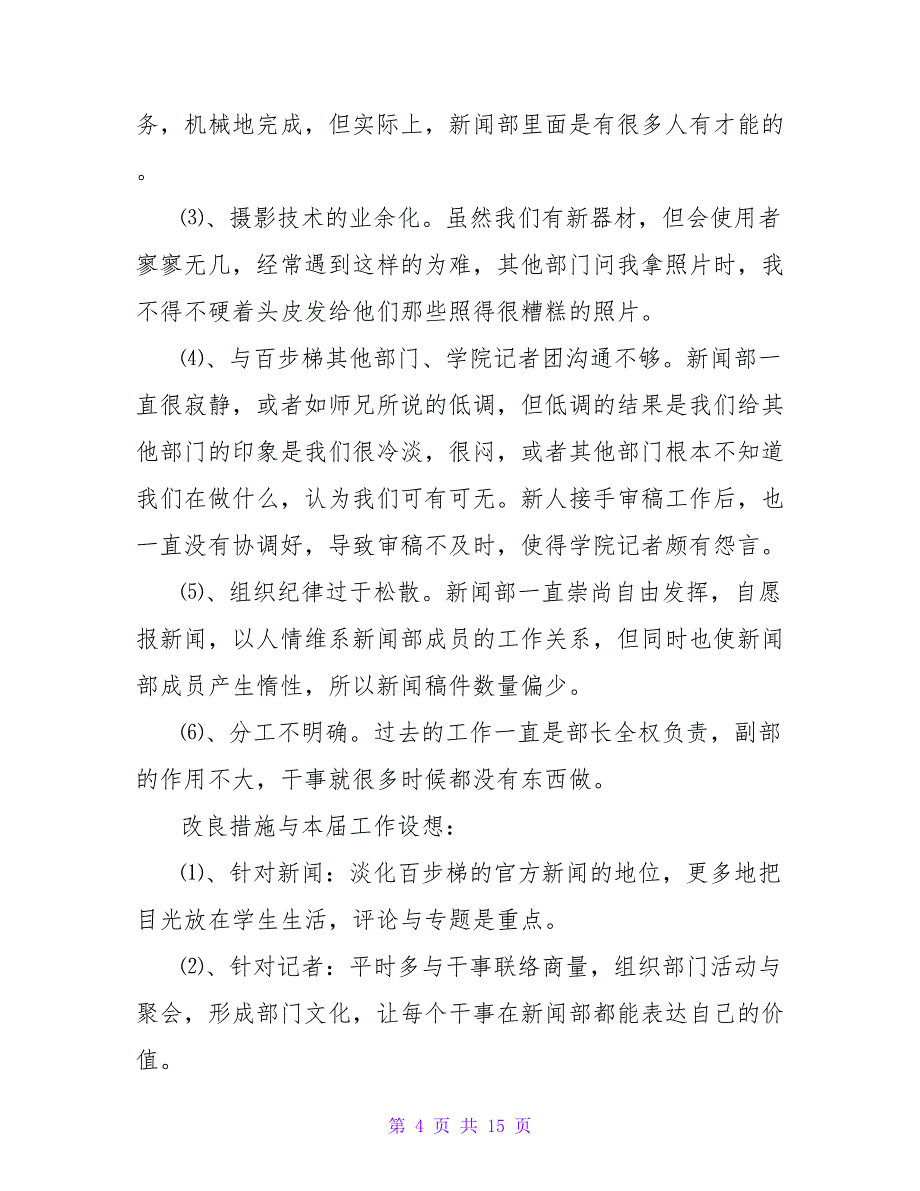 务，机械地完成，但实际上，新闻部里面是有很多人有才能的
。
⑶、摄影技术的业余化。虽然我们有新器材，但会使用者
寥寥无几，经常遇到这样的为难，其他部门问我拿照片时，我
不得不硬着头皮发给他们那些照得很糟糕的照片。
⑷、与百步梯其他部门、学院记者团沟通不够。新闻部一
直很寂静，或者如师兄所说的低调，但低调的结果是我们给其
他部门的印象是我们很冷淡，很闷，或者其他部门根本不知道
我们在做什么，认为我们可有可无。新人接手审稿工作后，也
一直没有协调好，导致审稿不及时，使得学院记者颇有怨言。
⑸、组织纪律过于松散。新闻部一直崇尚自由发挥，自愿
报新闻，以人情维系新闻部成员的工作关系，但同时也使新闻
部成员产生惰性，所以新闻稿件数量偏少。
⑹、分工不明确。过去的工作一直是部长全权负责，副部
的作用不大，干事就很多时候都没有东西做。
改良措施与本届工作设想：
⑴、针对新闻：淡化百步梯的官方新闻的地位，更多地把
目光放在学生生活，评论与专题是重点。
⑵、针对记者：平时多与干事联络商量，组织部门活动与
聚会，形成部门文化，让每个干事在新闻部都能表达自己的价
值。
第 4 页 共 15 页